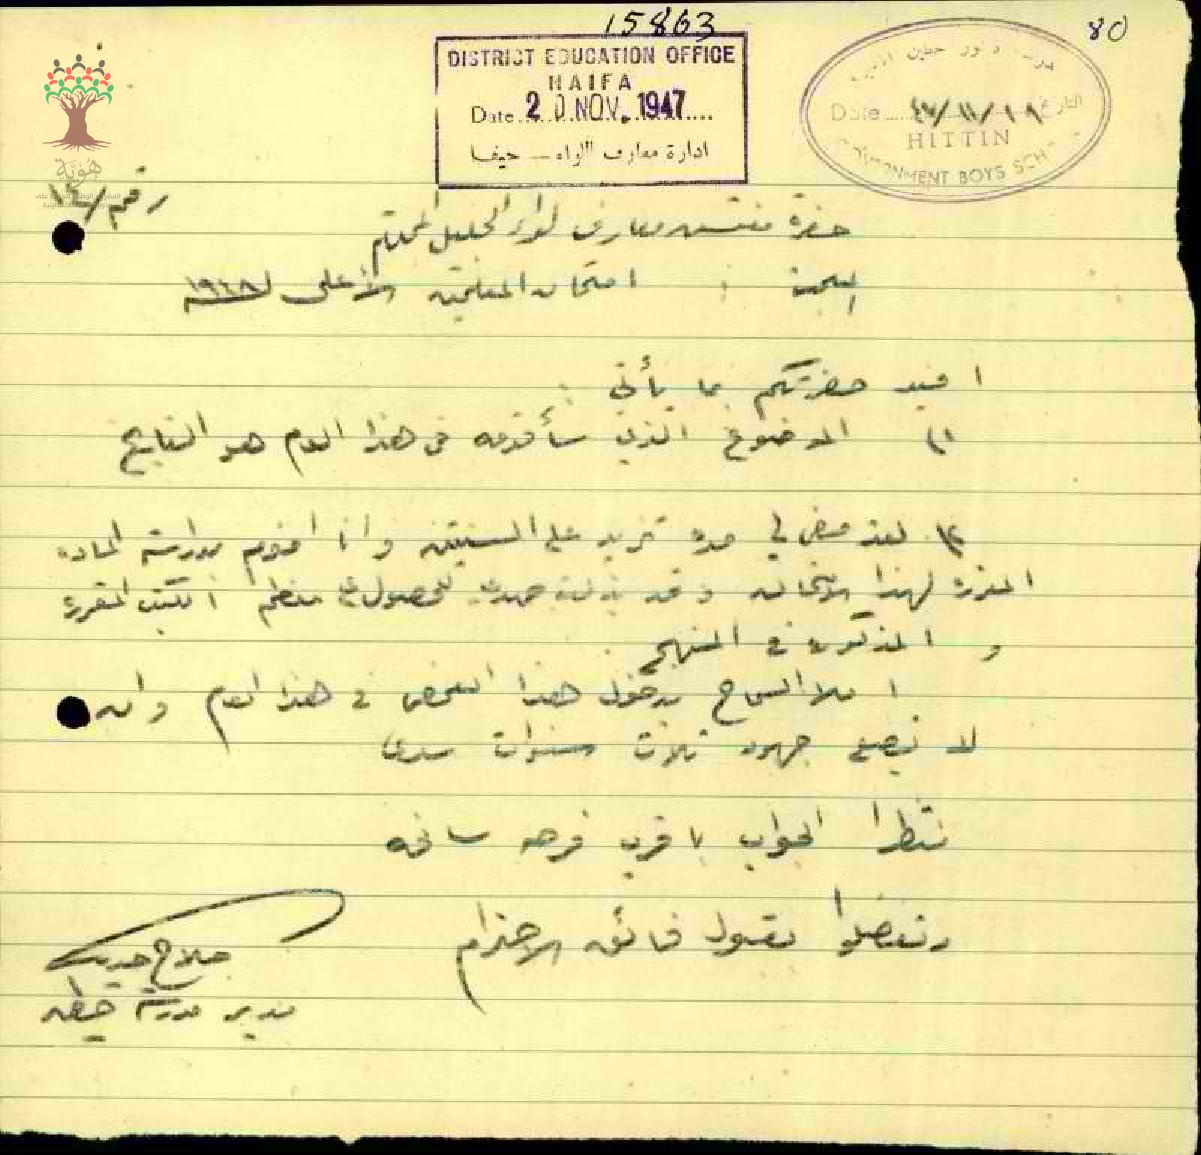 15863
80
DISTRICT EDUCATION OFFICE
HAIFA
Date 20 NOV. 1947
ادارة معارف اللواء — حيفا
Date ٤٧/١١/١٨ التاريخ
HITTIN
GOVERNMENT BOYS SCH
هُوِيَّة
رقم /١٤
حضرة مفتش معارف لواء الجليل المحترم
البحث : امتحان المعلمين الأعلى لـ ١٩٤٨
افيد حضرتكم بما يأتي :
١) الموضوع الذي سأقدمه في هذا العام هو التاريخ
٢) لقد مضى لي مدة تزيد على السنتين وانا اقوم بدراسة المادة
المقررة لهذا الامتحان وقد بذلت جهدي للحصول على معظم الكتب المقررة
و المذكورة في المنهج
املا السماح بدخول هذا الفحص في هذا العام وان
لا تضيع جهود ثلاث سنوات سدى
منتظرا الجواب بأقرب فرصة سانحة
وتفضلوا بقبول فائق الاحترام
صلاح
مدير مدرسة حطين